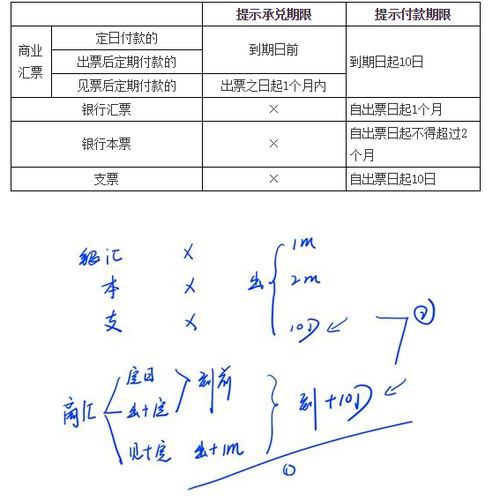 提示承兑期限 提示付款期限
商业汇票 定日付款的 到期日前 到期日起10日
出票后定期付款的
见票后定期付款的 出票之日起1个月内
银行汇票 × 自出票日起1个月
银行本票 × 自出票日起不得超过2个月
支票 × 自出票日起10日
银汇 × 出 1m
本 × 2m
支 × 10D ②
商汇 定日 到前 到+10D
出+定
见+定 出+1m
①